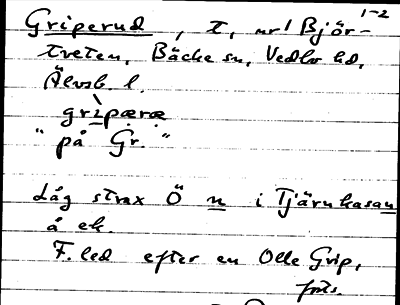 1-2
Griperud, t, nr 1 Björ-
treten, Bäcke sn, Vedbo hd,
Älvsb. l.
grìpæræ
"på Gr."
Låg strax Ö n i Tjärnkasan
å ek.
F. led efter en Olle Grip,
forts.